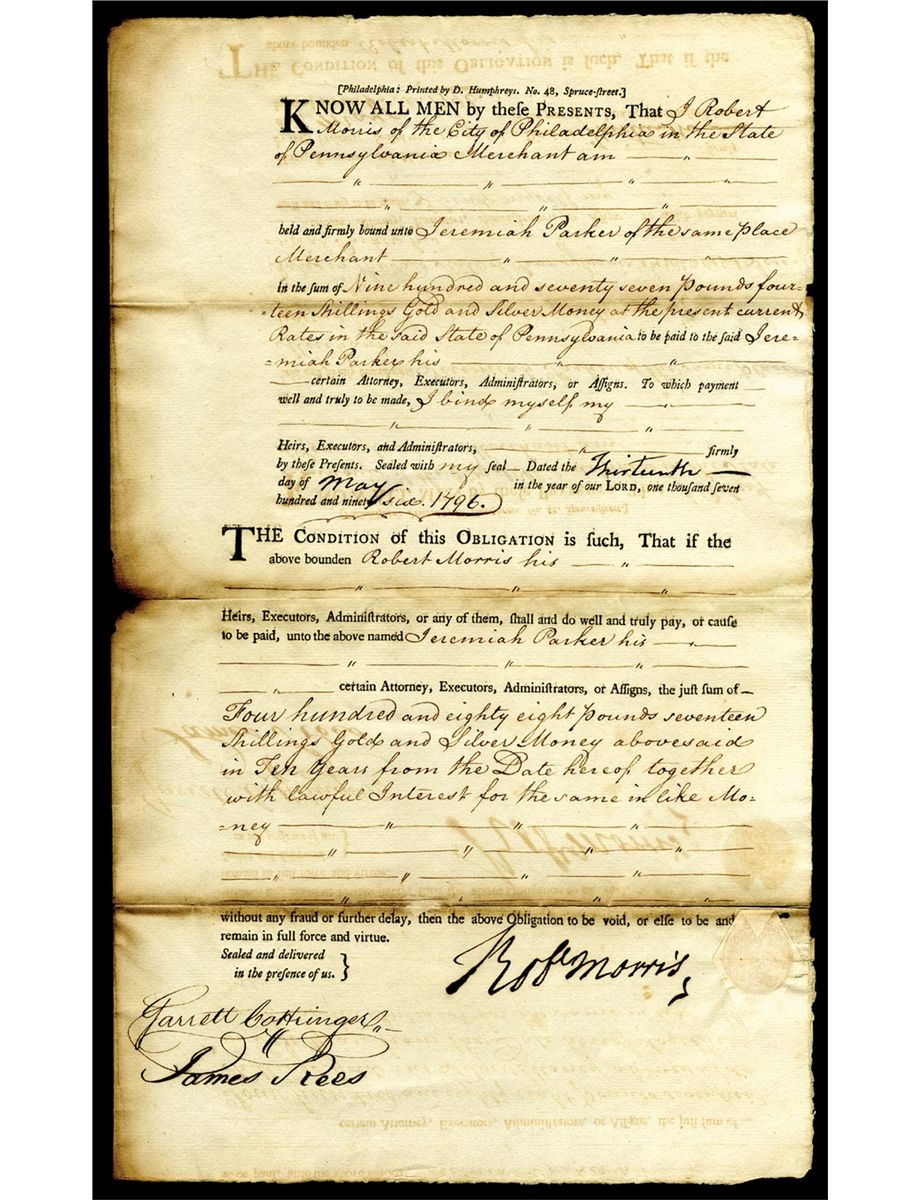 [Philadelphia: Printed by D. Humphreys. No. 48, Spruce-street.]
KNOW ALL MEN by theſe PRESENTS, That I Robert
Morris of the City of Philadelphia in the State
of Pennsylvania Merchant am
held and firmly bound unto Jeremiah Parker of the same place
Merchant
in the ſum of Nine hundred and seventy seven Pounds four=
=teen Shillings Gold and Silver Money at the present current
Rates in the said State of Pennsylvania to be paid to the ſaid Jere=
=miah Parker his
certain Attorney, Executors, Adminiſtrators, or Aſſigns. To which payment
well and truly to be made, I bind myself, my
Heirs, Executors, and Adminiſtrators, firmly
by theſe Preſents. Sealed with my ſeal Dated the Thirteenth
day of May in the year of our LORD, one thouſand ſeven
hundred and ninety six. 1796.
THE CONDITION of this OBLIGATION is ſuch, That if the
above bounden Robert Morris his
Heirs, Executors, Adminiſtrators, or any of them, ſhall and do well and truly pay, or cauſe
to be paid, unto the above named Jeremiah Parker his
certain Attorney, Executors, Adminiſtrators, or Aſſigns, the juſt ſum of
Four hundred and eighty eight Pounds seventeen
Shillings Gold and Silver Money abovesaid
in Ten Years from the Date hereof together
with lawful Interest for the same in like Mo=
=ney
without any fraud or further delay, then the above Obligation to be void, or elſe to be and
remain in full force and virtue.
Sealed and delivered
in the preſence of us. }
Robt Morris
Garrett Cottringer
James Rees